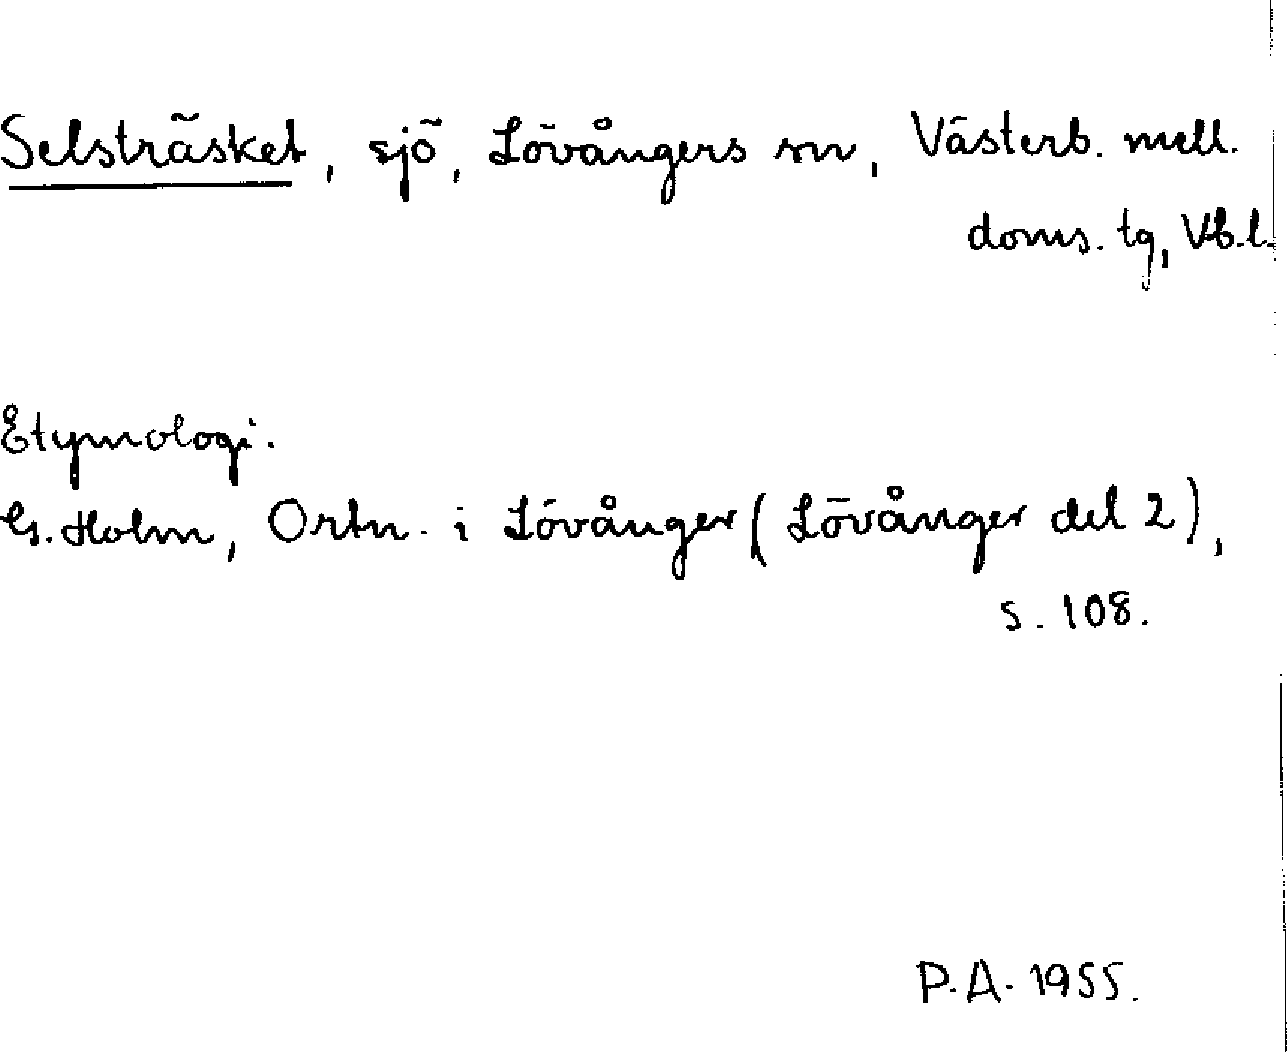 Selsträsket, sjö, Lövångers sn, Västerb. mell.
doms. tg, Vb.l.
Etymologi.
G. Holm, Ortn. i Lövånger (Lövånger del 2),
s. 108.
P.A. 1955.